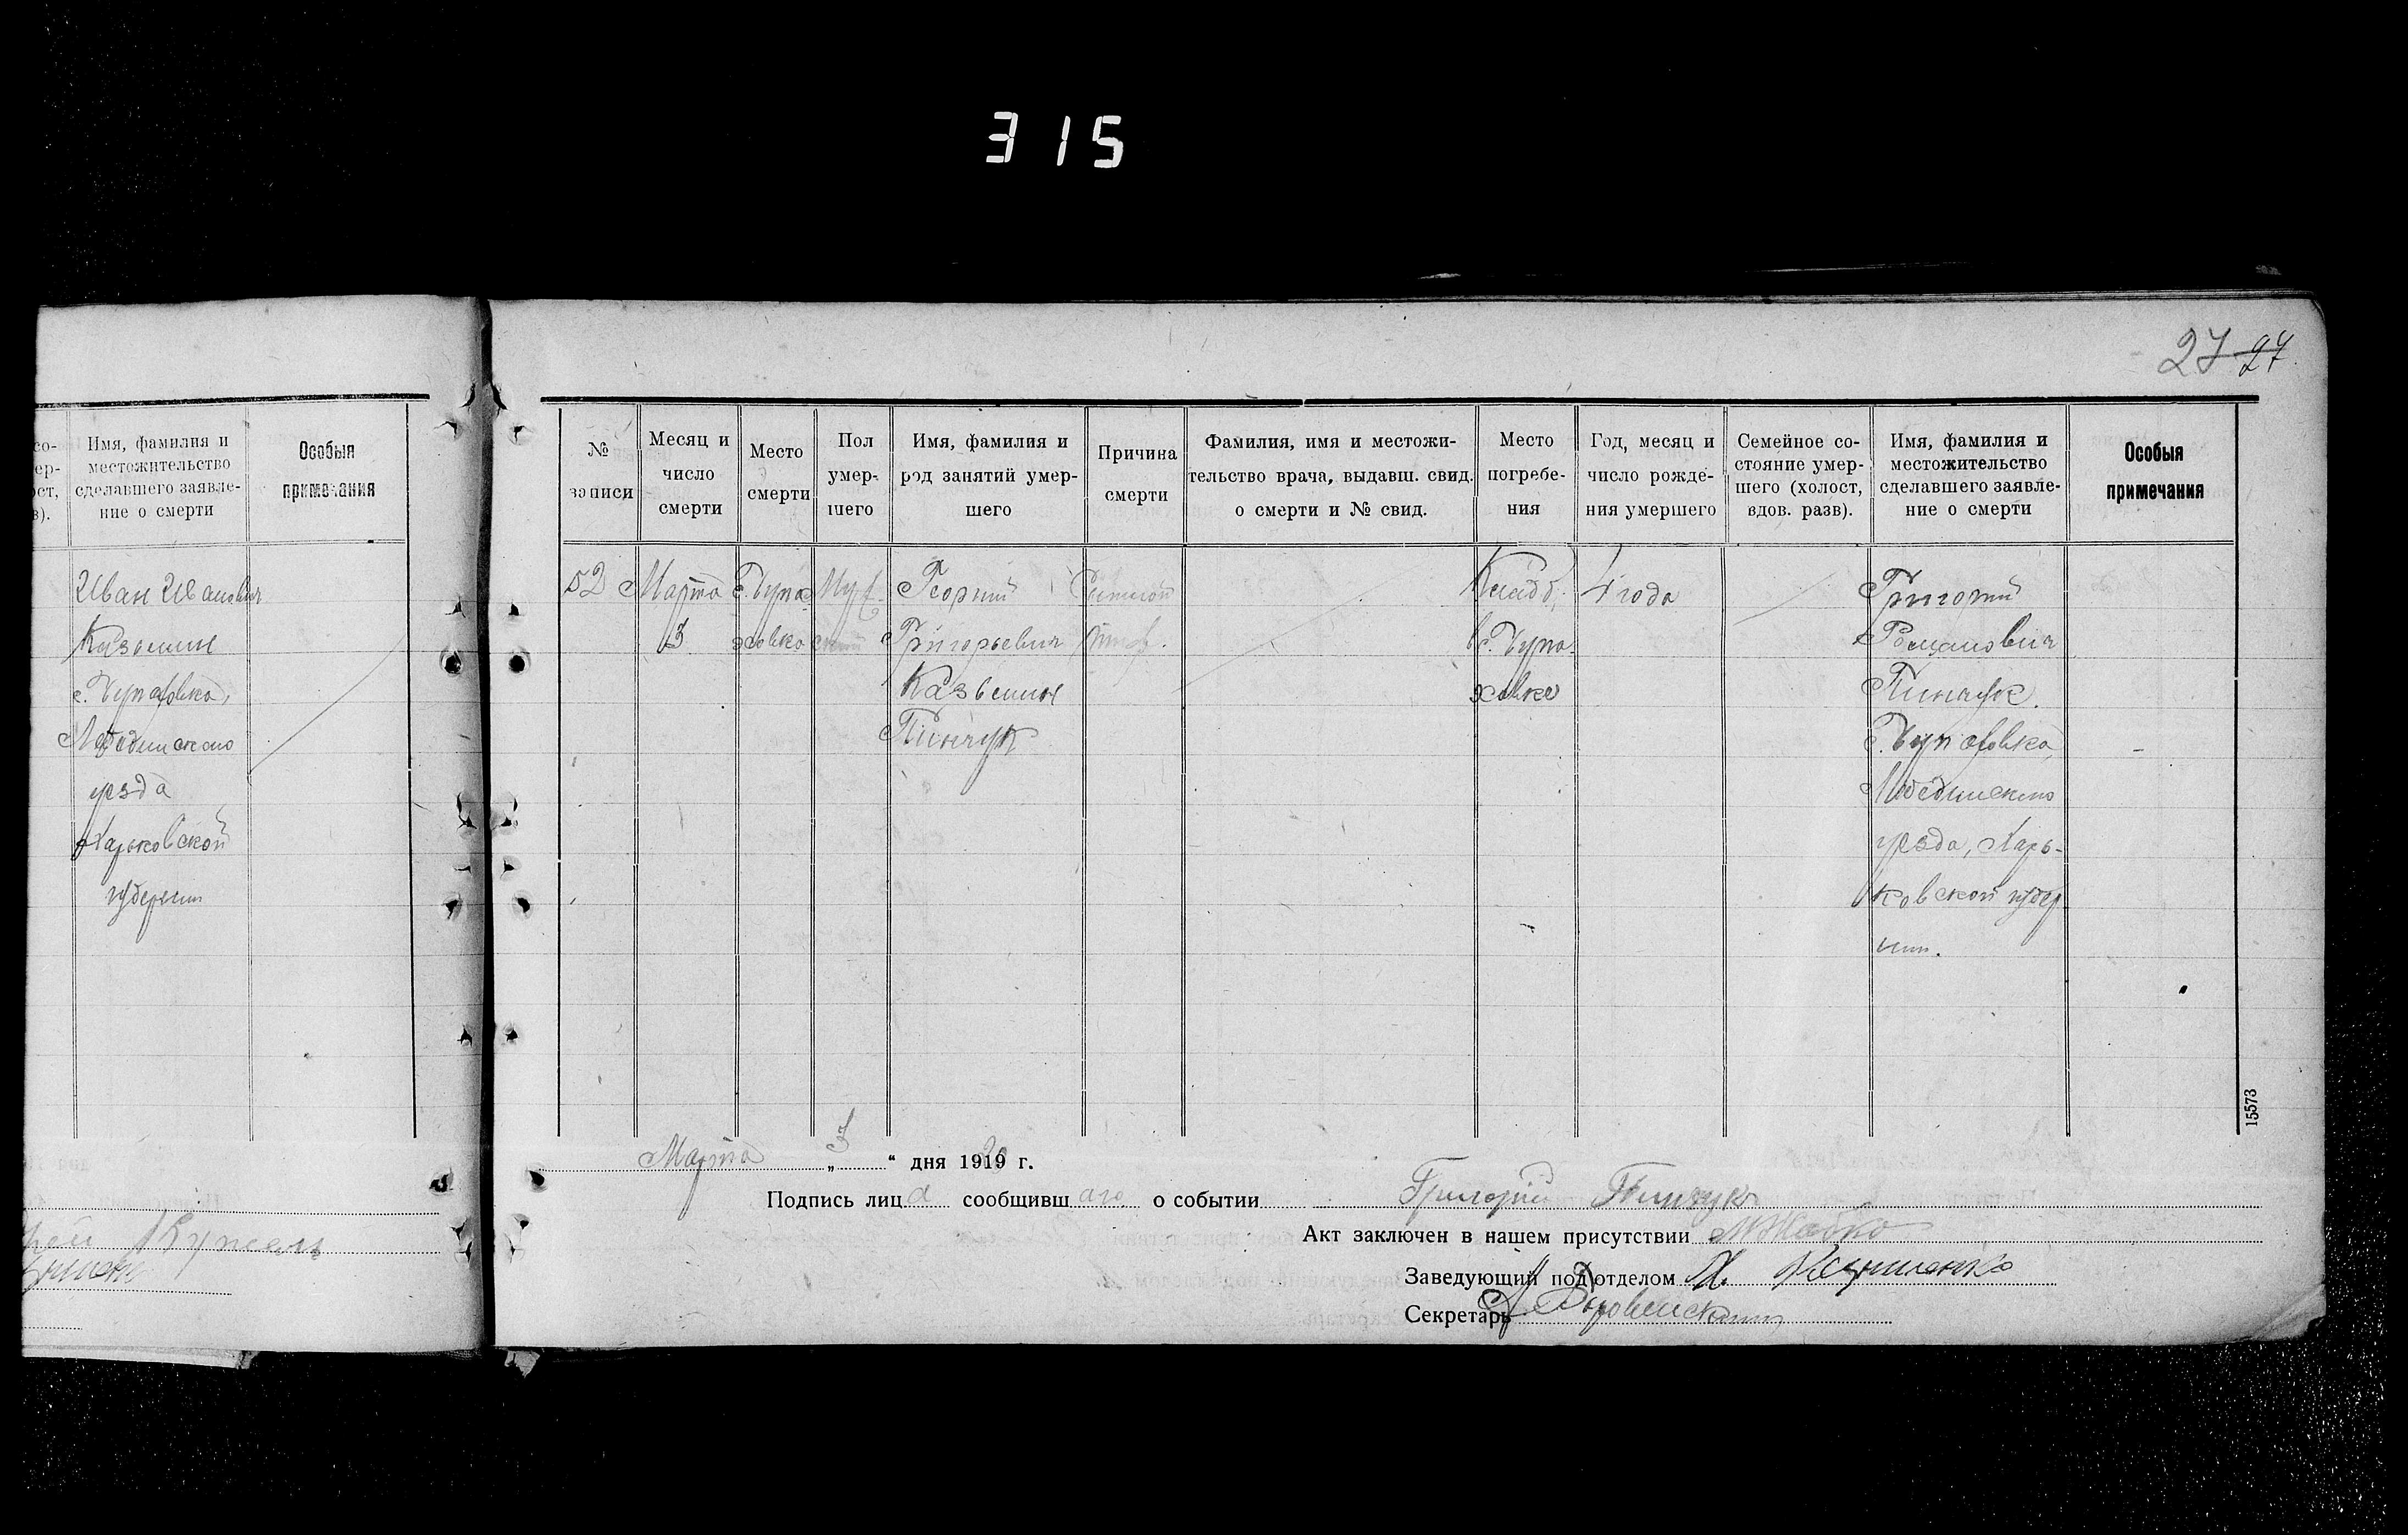 315
27 27
со-
ер-
ост,
в).
Имя, фамилия и
местожительство
сделавшего заявле-
ние о смерти
Особыя
примечания
Иван Иванович
Казьмин
с. Чупаховка,
Лебединского
уезда
Харьковской
губернии
№
записи
Месяц и
число
смерти
Место
смерти
Пол
умер-
шего
Имя, фамилия и
род занятий умер-
шего
Причина
смерти
Фамилия, имя и местожи-
тельство врача, выдавш. свид.
о смерти и № свид.
Место
погребе-
ния
Год, месяц и
число рожде-
ния умершего
Семейное со-
стояние умер-
шего (холост,
вдов. разв).
Имя, фамилия и
местожительство
сделавшего заявле-
ние о смерти
Особыя
примечания
52
Марта
3
с. Чупа-
ховка
Муж-
ской
Георгий
Григорьевич
Пинчук
Сыпной
тиф.
Кладб.
в с. Чупа-
ховке
4 года
Григорий
Романович
Пинчук.
с. Чупаховка,
Лебединского
уезда, Харь-
ковской губер
нии.
15573
Марта „ “ дня 1919 г.
Подпись лица сообщившаго о событии Григорий Пинчук
Акт заключен в нашем присутствии
Заведующий подотделом
Секретарь